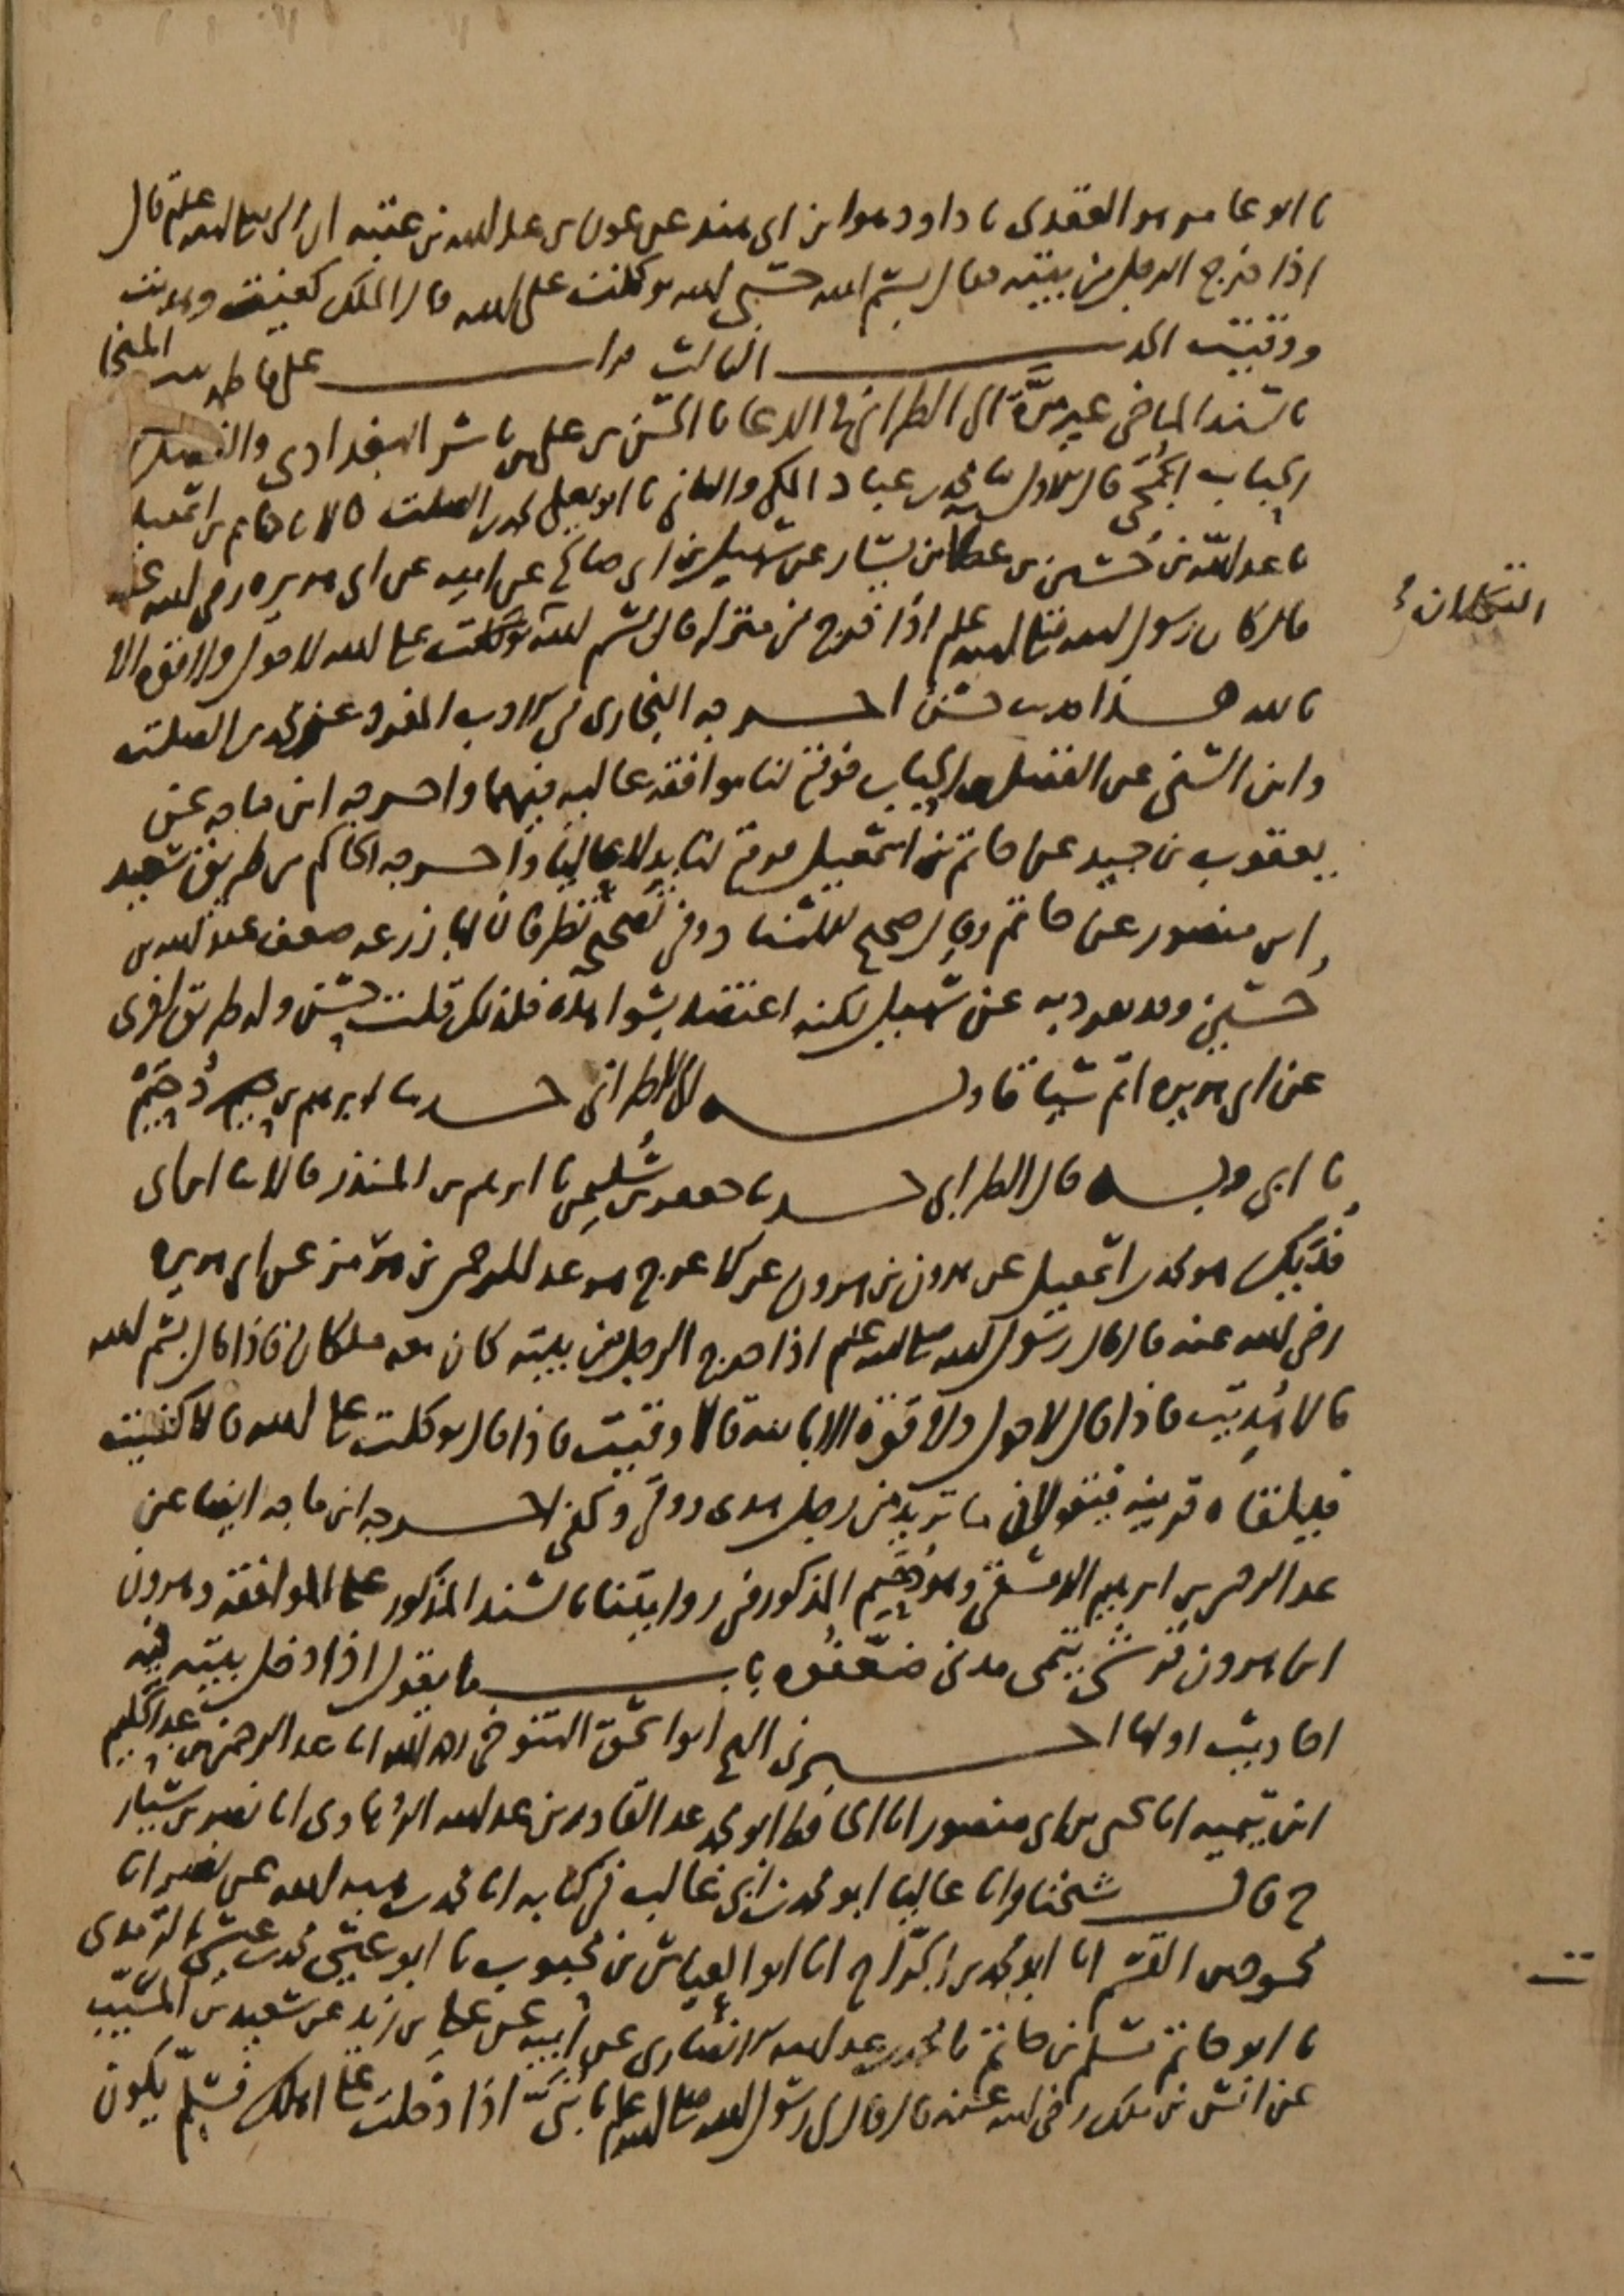 نا ابو عامر هو العقدي نا داود هو ابن ابي هند عن عون بن عبد الله بن عتبه ان النبي صلى الله عليه وسلم قال
اذا خرج الرجل من بيته فقال بسم الله حسبي الله توكلت على الله قال الملك كفيت وهديت
ووقيت الحديث الثالث قرات على فاطمه بنت المنجا
بالسند الماضي غير مرة الى الطبراني في الدعا نا الحسن بن علي بن ياسر البغدادي والفضل بن
الحباب الجمحي قال الاول نا محمد بن عباد المكي والثاني نا ابو يعلى محمد بن الصلت قالا نا حاتم بن اسمعيل
نا عبد الله بن حسين بن عطا بن يسار عن سهيل بن ابي صالح عن ابيه عن ابي هريره رضي الله عنه
قال كان رسول الله صلى الله عليه وسلم اذا خرج من منزله قال بسم الله توكلت على الله لا حول ولا قوه الا
التكلان
بالله هذا حديث حسن اخرجه البخاري في الادب المفرد عن محمد بن الصلت
وابن السني عن الفضل بن الحباب فوقع لنا موافقه عاليه فيهما واخرجه ابن ماجه عن
يعقوب بن حميد عن حاتم بن اسمعيل فوقع لنا بدلا عاليا واخرجه الحاكم من طريق سعيد
ابن منصور عن حاتم وقال صحيح الاسناد وفي تصحيحه نظر فان ابا زرعه ضعف عبد الله بن
حسين وقد تفرد به عن سهيل لكنه اعتضد بشواهده فلذلك قلت حسن وله طريق اخرى
عن ابي هريره اتم سياقا وبه الى الطبراني حدثنا ابرهيم بن دحيم
نا ابي وبه قال الطبراني حدثنا جعفر بن سليمن نا ابرهيم بن المنذر قالا نا ابن ابي
فديك هو محمد بن اسمعيل عن هرون بن هرون عن الاعرج هو عبد الرحمن بن هرمز عن ابي هريره
رضي الله عنه قال قال رسول الله صلى الله عليه وسلم اذا خرج الرجل من بيته كان معه ملكان فاذا قال بسم الله
قالا هديت فاذا قال لا حول ولا قوة الا بالله قالا وقيت فاذا قال توكلت على الله قالا كفيت
فيلقاه قرينه فيقولان ما تريد من رجل هدي ووقي وكفي اخرجه ابن ماجه ايضا عن
عبد الرحمن بن ابرهيم الدمشقي وهو دحيم المذكور في روايتنا بالسند المذكور على الموافقه وهرون
ابن هرون قرشي تيمي مدني ضعفوه باب ما يقول اذا دخل بيته فيه
احاديث اولها اخبرني الشيخ ابو اسحق التنوخي رحمه الله انا عبد الرحمن بن عبد الحليم
ابن تيميه انا يحيى بن ابي منصور انا الحافظ ابو محمد عبد القادر بن عبد الله الرهاوي انا نصر بن سيار
ح قال شيخنا وانا عاليا ابو محمد بن ابي غالب في كتابه انا محمد بن هبه الله عن نصر انا
محمود بن القسم انا ابو محمد بن الجراح انا ابو العباس بن محبوب نا ابو عيسى محمد بن عيسى الترمذي
نا ابو حاتم مسلم بن حاتم نا محمد بن عبد الله الانصاري عن ابيه عن علي بن زيد عن سعيد بن المسيب
عن انس بن ملك رضي الله عنه قال قال لي رسول الله صلى الله عليه وسلم يا بني اذا دخلت على اهلك فسلم يكون